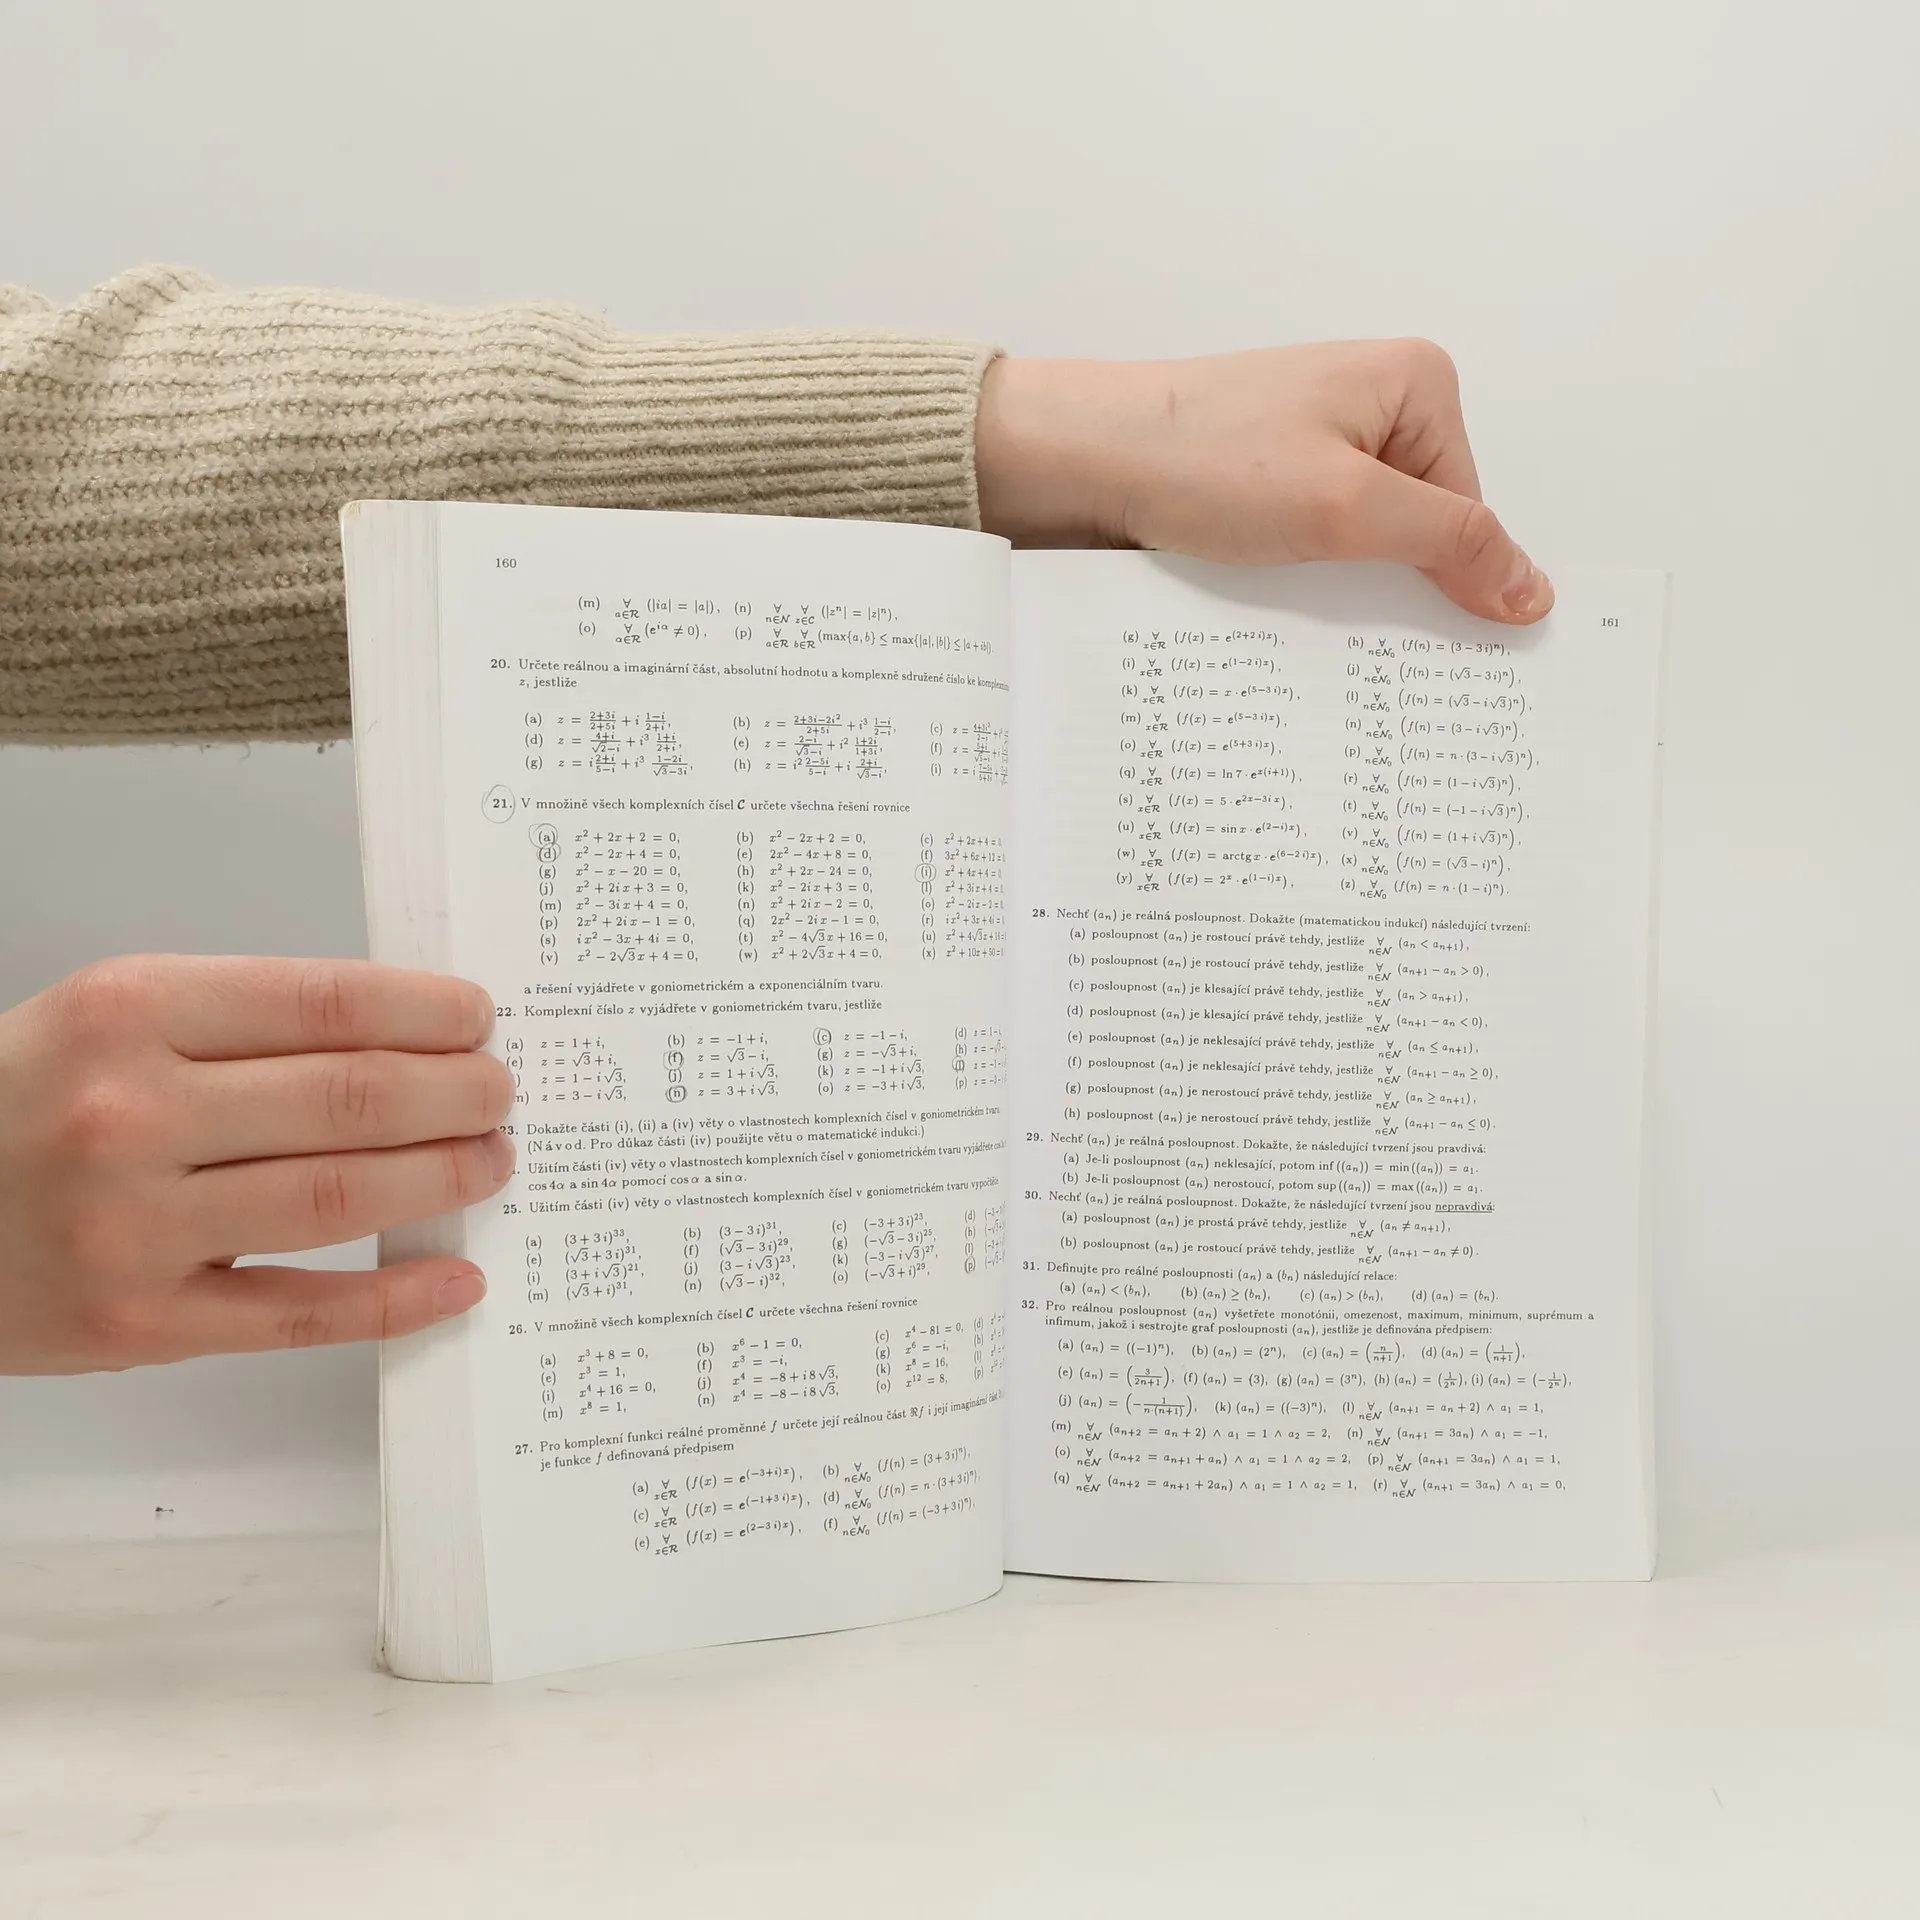 160
(m) ∀ a∈R (|ia| = |a|), (n) ∀ n∈N ∀ z∈C (|zⁿ| = |z|ⁿ),
(o) ∀ a∈R (e^{ia} ≠ 0), (p) ∀ a∈R ∀ b∈R (max{a, b} ≤ max{|a|, |b|} ≤ |a + ib|).
20. Určete reálnou a imaginární část, absolutní hodnotu a komplexně sdružené číslo ke
z, jestliže
(a) z = (2+3i)/(2+5i) + i (1−i)/(2+i), (b) z = (2+3i−2i²)/(2+5i) + i³ (1−i)/(2−i), (c)
(d) z = (4+i)/(√2−i) + i³ (1+i)/(2+i), (e) z = (2−i)/(√3−i) + i² (1+2i)/(1+3i), (f)
(g) z = i (2+i)/(5−i) + i³ (1−2i)/(√3−3i), (h) z = i² (2−5i)/(5−i) + i (2+i)/(√3−i), (i)
21. V množině všech komplexních čísel C určete všechna řešení rovnice
(a) x² + 2x + 2 = 0, (b) x² − 2x + 2 = 0, (c) x² + 2x + 4 = 0,
(d) x² − 2x + 4 = 0, (e) 2x² − 4x + 8 = 0, (f) 3x² + 6x + 12 = 0,
(g) x² − x − 20 = 0, (h) x² + 2x − 24 = 0, (i) x² + 4x + 4 = 0,
(j) x² + 2ix + 3 = 0, (k) x² − 2ix + 3 = 0, (l) x² + 3ix + 4 = 0,
(m) x² − 3ix + 4 = 0, (n) x² + 2ix − 2 = 0, (o) x² − 2ix − 2 = 0,
(p) 2x² + 2ix − 1 = 0, (q) 2x² − 2ix − 1 = 0, (r) ix² + 3x + 4i = 0,
(s) ix² − 3x + 4i = 0, (t) x² − 4√3x + 16 = 0, (u) x² + 4√3x + 16 = 0,
(v) x² − 2√3x + 4 = 0, (w) x² + 2√3x + 4 = 0, (x) x² + 10x + 50 = 0,
a řešení vyjádřete v goniometrickém a exponenciálním tvaru.
22. Komplexní číslo z vyjádřete v goniometrickém tvaru, jestliže
(a) z = 1 + i, (b) z = −1 + i, (c) z = −1 − i, (d) z = 1 − i,
(e) z = √3 + i, (f) z = √3 − i, (g) z = −√3 + i, (h)
z = 1 − i√3, (j) z = 1 + i√3, (k) z = −1 + i√3, (l)
z = 3 − i√3, (n) z = 3 + i√3, (o) z = −3 + i√3, (p)
23. Dokažte části (i), (ii) a (iv) věty o vlastnostech komplexních čísel v goniometrickém tvaru.
(Návod. Pro důkaz části (iv) použijte větu o matematické indukci.)
Užitím části (iv) věty o vlastnostech komplexních čísel v goniometrickém tvaru vyjádřete
cos 4α a sin 4α pomocí cos α a sin α.
25. Užitím části (iv) věty o vlastnostech komplexních čísel v goniometrickém tvaru vypočtěte
(a) (3 + 3i)³³, (b) (3 − 3i)³¹, (c) (−3 + 3i)²³, (d)
(e) (√3 + 3i)³¹, (f) (√3 − 3i)²⁹, (g) (−√3 − 3i)²⁵, (h)
(i) (3 + i√3)²¹, (j) (3 − i√3)²³, (k) (−3 − i√3)²⁷, (l)
(m) (√3 + i)³¹, (n) (√3 − i)³², (o) (−√3 + i)²⁹, (p)
26. V množině všech komplexních čísel C určete všechna řešení rovnice
(a) x³ + 8 = 0, (b) x⁶ − 1 = 0, (c) x⁴ − 81 = 0, (d)
(e) x³ = 1, (f) x³ = −i, (g) x⁶ = −i, (h)
(i) x⁴ + 16 = 0, (j) x⁴ = −8 + i8√3, (k) x⁸ = 16, (l)
(m) x⁸ = 1, (n) x⁴ = −8 − i8√3, (o) x¹² = 8, (p)
27. Pro komplexní funkci reálné proměnné f určete její reálnou část ℜf i její imaginární část
je funkce f definovaná předpisem
(a) ∀ x∈R (f(x) = e^{(−3+i)x}), (b) ∀ n∈N₀ (f(n) = (3 + 3i)ⁿ),
(c) ∀ x∈R (f(x) = e^{(−1+3i)x}), (d) ∀ n∈N₀ (f(n) = n · (3 + 3i)ⁿ),
(e) ∀ x∈R (f(x) = e^{(2−3i)x}), (f) ∀ n∈N₀ (f(n) = (−3 + 3i)ⁿ),
161
(g) ∀ x∈R (f(x) = e^{(2+2i)x}), (h) ∀ n∈N₀ (f(n) = (3 − 3i)ⁿ),
(i) ∀ x∈R (f(x) = e^{(1−2i)x}), (j) ∀ n∈N₀ (f(n) = (√3 − 3i)ⁿ),
(k) ∀ x∈R (f(x) = x · e^{(5−3i)x}), (l) ∀ n∈N₀ (f(n) = (√3 − i√3)ⁿ),
(m) ∀ x∈R (f(x) = e^{(5−3i)x}), (n) ∀ n∈N₀ (f(n) = (3 − i√3)ⁿ),
(o) ∀ x∈R (f(x) = e^{(5+3i)x}), (p) ∀ n∈N₀ (f(n) = n · (3 − i√3)ⁿ),
(q) ∀ x∈R (f(x) = ln 7 · e^{x(i+1)}), (r) ∀ n∈N₀ (f(n) = (1 − i√3)ⁿ),
(s) ∀ x∈R (f(x) = 5 · e^{2x−3ix}), (t) ∀ n∈N₀ (f(n) = (−1 − i√3)ⁿ),
(u) ∀ x∈R (f(x) = sin x · e^{(2−i)x}), (v) ∀ n∈N₀ (f(n) = (1 + i√3)ⁿ),
(w) ∀ x∈R (f(x) = arctg x · e^{(6−2i)x}), (x) ∀ n∈N₀ (f(n) = (√3 − i)ⁿ),
(y) ∀ x∈R (f(x) = 2ˣ · e^{(1−i)x}), (z) ∀ n∈N₀ (f(n) = n · (1 − i)ⁿ).
28. Nechť (aₙ) je reálná posloupnost. Dokažte (matematickou indukcí) následující tvrzení:
(a) posloupnost (aₙ) je rostoucí právě tehdy, jestliže ∀ n∈N (aₙ < aₙ₊₁),
(b) posloupnost (aₙ) je rostoucí právě tehdy, jestliže ∀ n∈N (aₙ₊₁ − aₙ > 0),
(c) posloupnost (aₙ) je klesající právě tehdy, jestliže ∀ n∈N (aₙ > aₙ₊₁),
(d) posloupnost (aₙ) je klesající právě tehdy, jestliže ∀ n∈N (aₙ₊₁ − aₙ < 0),
(e) posloupnost (aₙ) je neklesající právě tehdy, jestliže ∀ n∈N (aₙ ≤ aₙ₊₁),
(f) posloupnost (aₙ) je neklesající právě tehdy, jestliže ∀ n∈N (aₙ₊₁ − aₙ ≥ 0),
(g) posloupnost (aₙ) je nerostoucí právě tehdy, jestliže ∀ n∈N (aₙ ≥ aₙ₊₁),
(h) posloupnost (aₙ) je nerostoucí právě tehdy, jestliže ∀ n∈N (aₙ₊₁ − aₙ ≤ 0).
29. Nechť (aₙ) je reálná posloupnost. Dokažte, že následující tvrzení jsou pravdivá:
(a) Je-li posloupnost (aₙ) neklesající, potom inf ((aₙ)) = min ((aₙ)) = a₁.
(b) Je-li posloupnost (aₙ) nerostoucí, potom sup ((aₙ)) = max ((aₙ)) = a₁.
30. Nechť (aₙ) je reálná posloupnost. Dokažte, že následující tvrzení jsou nepravdivá:
(a) posloupnost (aₙ) je prostá právě tehdy, jestliže ∀ n∈N (aₙ ≠ aₙ₊₁),
(b) posloupnost (aₙ) je rostoucí právě tehdy, jestliže ∀ n∈N (aₙ₊₁ − aₙ ≠ 0).
31. Definujte pro reálné posloupnosti (aₙ) a (bₙ) následující relace:
(a) (aₙ) < (bₙ), (b) (aₙ) ≥ (bₙ), (c) (aₙ) > (bₙ), (d) (aₙ) = (bₙ).
32. Pro reálnou posloupnost (aₙ) vyšetřete monotónii, omezenost, maximum, minimum, suprémum a
infimum, jakož i sestrojte graf posloupnosti (aₙ), jestliže je definována předpisem:
(a) (aₙ) = ((−1)ⁿ), (b) (aₙ) = (2ⁿ), (c) (aₙ) = (n/(n+1)), (d) (aₙ) = (1/(n+1)),
(e) (aₙ) = (3/(2n+1)), (f) (aₙ) = (3), (g) (aₙ) = (3ⁿ), (h) (aₙ) = (1/2ⁿ), (i) (aₙ) = (−1/2ⁿ),
(j) (aₙ) = (−1/(n·(n+1))), (k) (aₙ) = ((−3)ⁿ), (l) ∀ n∈N (aₙ₊₁ = aₙ + 2) ∧ a₁ = 1,
(m) ∀ n∈N (aₙ₊₂ = aₙ + 2) ∧ a₁ = 1 ∧ a₂ = 2, (n) ∀ n∈N (aₙ₊₁ = 3aₙ) ∧ a₁ = −1,
(o) ∀ n∈N (aₙ₊₂ = aₙ₊₁ + aₙ) ∧ a₁ = 1 ∧ a₂ = 2, (p) ∀ n∈N (aₙ₊₁ = 3aₙ) ∧ a₁ = 1,
(q) ∀ n∈N (aₙ₊₂ = aₙ₊₁ + 2aₙ) ∧ a₁ = 1 ∧ a₂ = 1, (r) ∀ n∈N (aₙ₊₁ = 3aₙ) ∧ a₁ = 0,